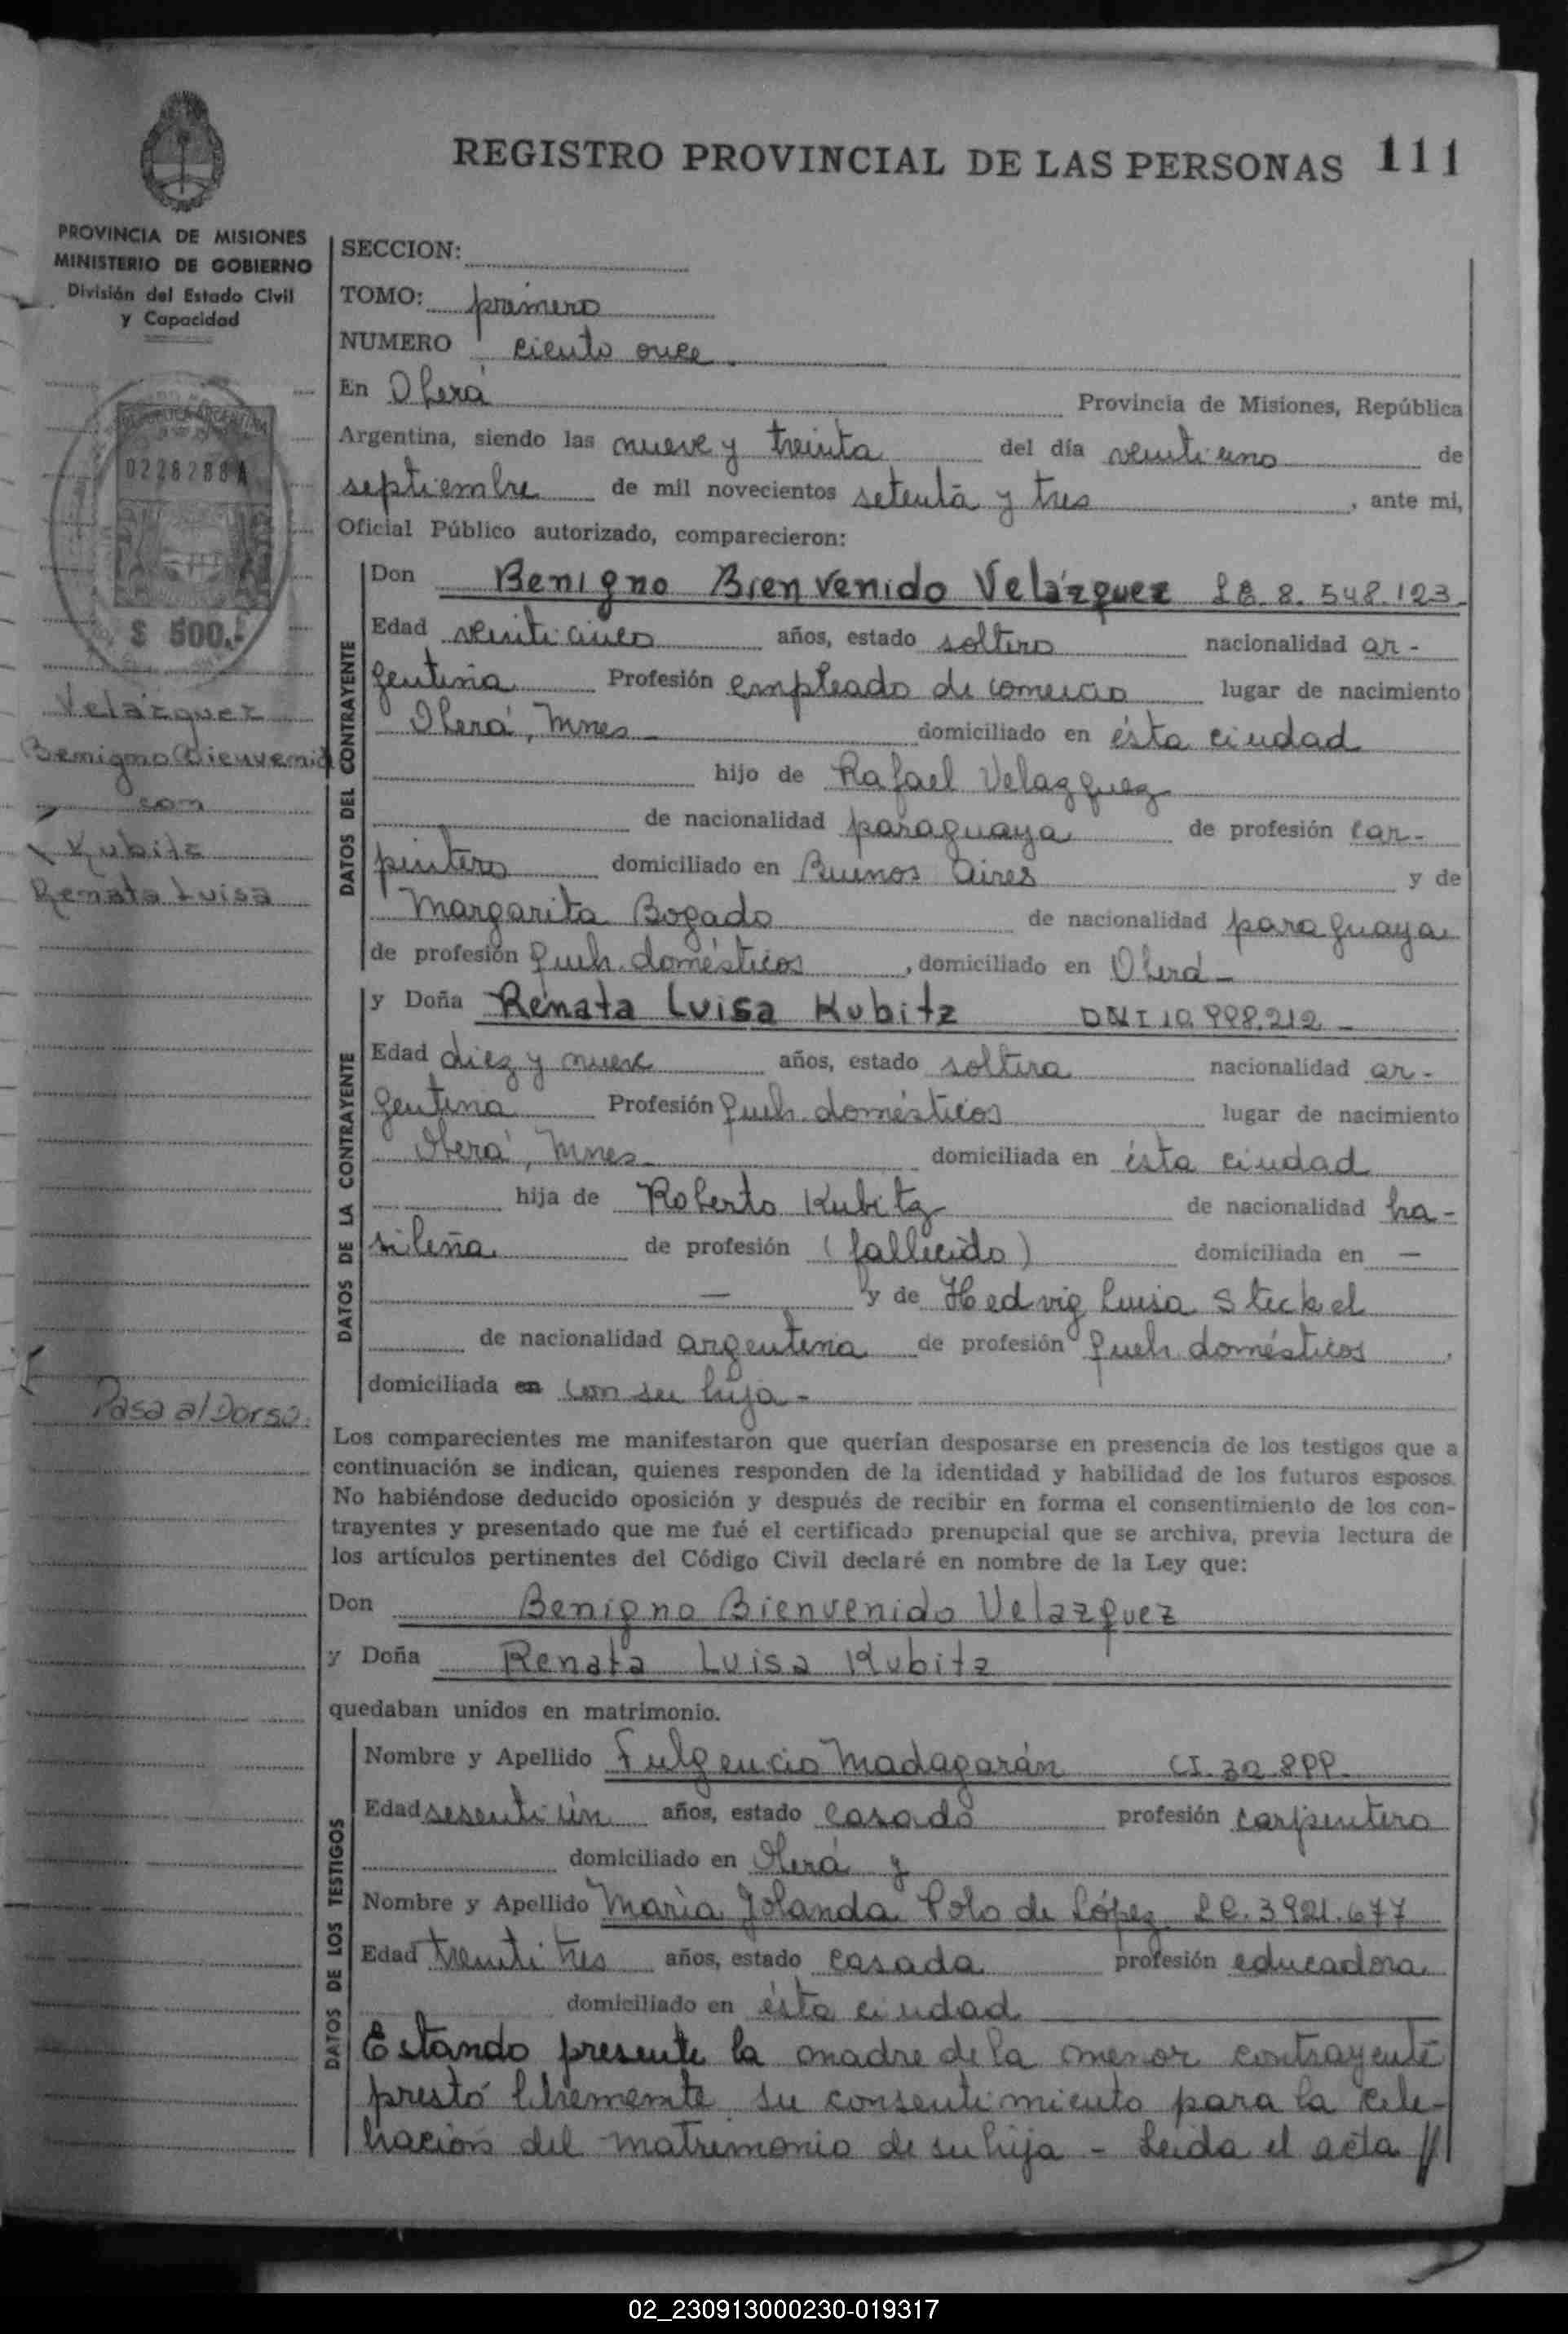 REGISTRO PROVINCIAL DE LAS PERSONAS 111
PROVINCIA DE MISIONES
MINISTERIO DE GOBIERNO
División del Estado Civil
y Capacidad
SECCION:
TOMO: primero
NUMERO ciento once
En Oberá Provincia de Misiones, República
Argentina, siendo las nueve y treinta del día veintiuno de
septiembre de mil novecientos setenta y tres, ante mi,
Oficial Público autorizado, comparecieron:
$ 500.-
Velázquez
Benigno Bienvenid
con
Kubitz
Renata Luisa
Pasa al Dorso.
DATOS DEL CONTRAYENTE
Don Benigno Bienvenido Velázquez LE. 8.548.123-
Edad veinticinco años, estado soltero nacionalidad ar-
gentina Profesión empleado de comercio lugar de nacimiento
Oberá, Mnes domiciliado en ésta ciudad
hijo de Rafael Velazquez
de nacionalidad paraguaya de profesión car-
pintero domiciliado en Buenos Aires y de
Margarita Bogado de nacionalidad paraguaya
de profesión queh. domésticos, domiciliado en Oberá-
DATOS DE LA CONTRAYENTE
y Doña Renata Luisa Kubitz DNI 10.998.212-
Edad diez y nueve años, estado soltera nacionalidad ar-
gentina Profesión queh. domésticos lugar de nacimiento
Oberá, Mnes domiciliada en ésta ciudad
hija de Roberto Kubitz de nacionalidad bra-
sileña de profesión (fallecido) domiciliada en —
— y de Hedvig Luisa Steckel
de nacionalidad argentina de profesión queh. domésticos,
domiciliada en con su hija-
Los comparecientes me manifestaron que querían desposarse en presencia de los testigos que a
continuación se indican, quienes responden de la identidad y habilidad de los futuros esposos.
No habiéndose deducido oposición y después de recibir en forma el consentimiento de los con-
trayentes y presentado que me fué el certificado prenupcial que se archiva, previa lectura de
los artículos pertinentes del Código Civil declaré en nombre de la Ley que:
Don Benigno Bienvenido Velazquez
y Doña Renata Luisa Kubitz
quedaban unidos en matrimonio.
DATOS DE LOS TESTIGOS
Nombre y Apellido Fulgencio Madagarán CI.
Edad sesentiún años, estado casado profesión carpintero
domiciliado en Oberá y
Nombre y Apellido María Jolanda Polo de López LC. 3921.677
Edad treintitres años, estado casada profesión educadora
domiciliado en ésta ciudad
Estando presente la madre de la menor contrayente
prestó libremente su consentimiento para la cele-
bración del matrimonio de su hija - Leida el acta //
02_230913000230-019317